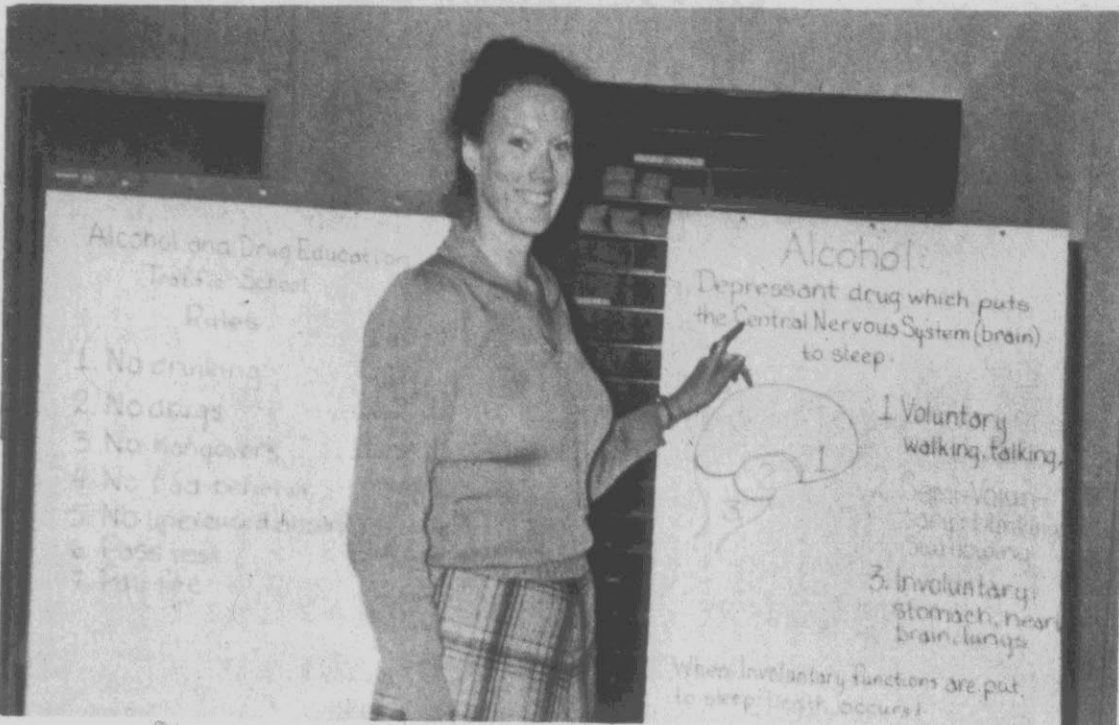 Alcohol and Drug Education
Traffic School
Rules
1. No drinking
2. No drugs
3. No hangovers
4. No bad behavior
5. No
6. Pass test
7. Pay fee
Alcohol:
Depressant drug which puts
the Central Nervous System (brain)
to sleep.
1
2
3
1. Voluntary
walking, talking,
2. Semi-Volun-
tary: blinking
swallowing
3. Involuntary:
stomach, heart
brain, lungs
When Involuntary functions are put
to sleep Death occurs!